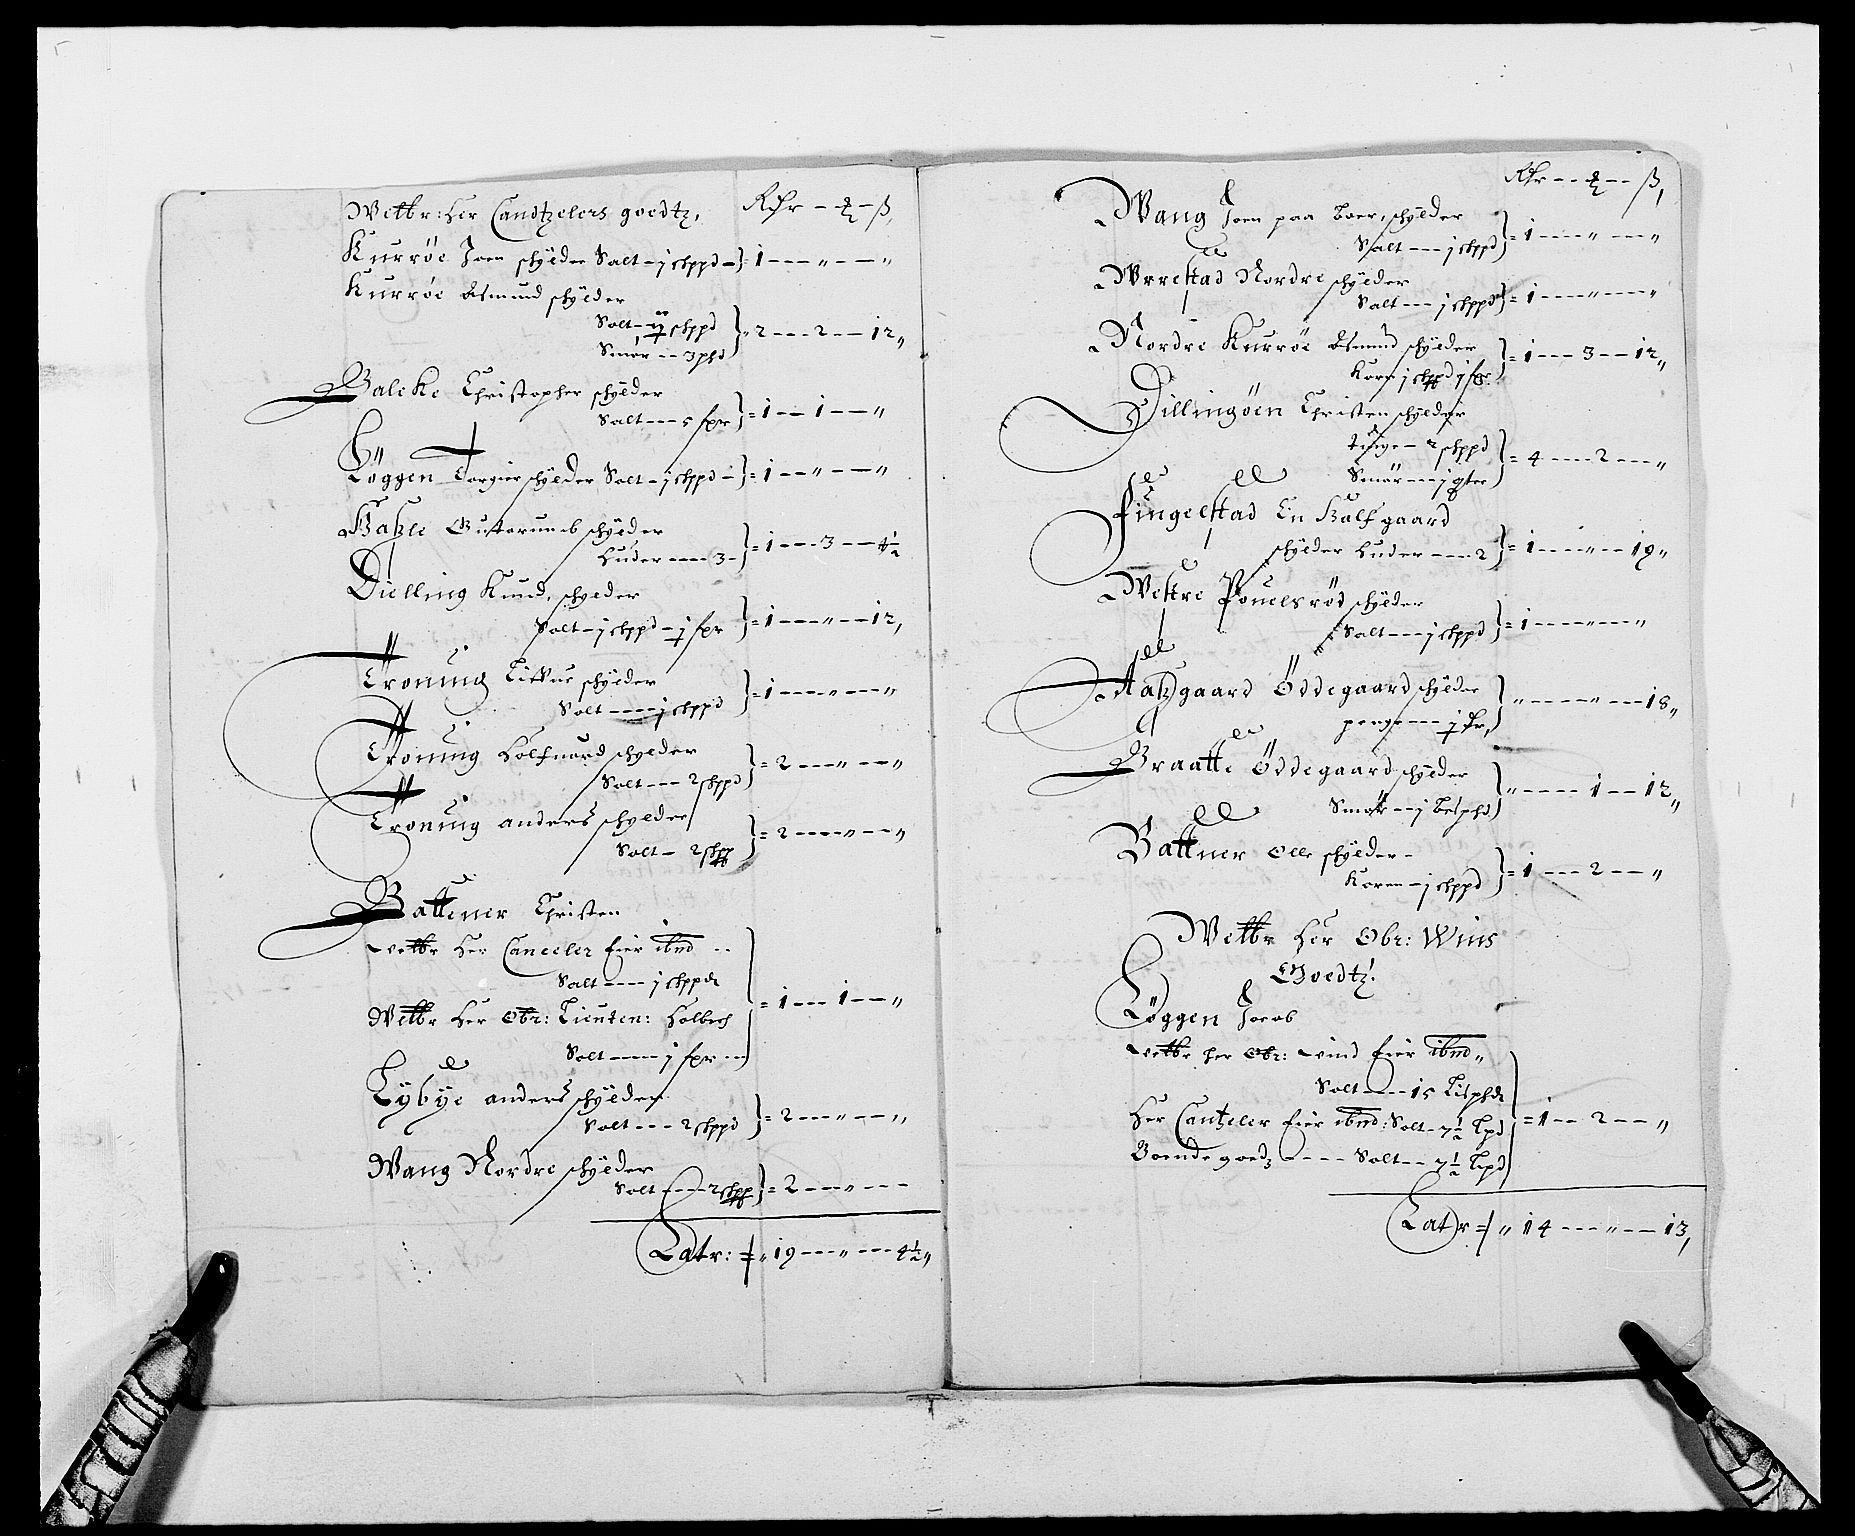 Welbr: Her Candtzelers goedtz, Rdr — ₰ — ß,
Kurröe Joen schÿlder Salt — j schppd — = 1 — — „ — — „
Kurröe Asmund schÿlder
Salt — schppd
Smör — — 3 phd = 2 — — 2 — — 12 „
Balcke Christopher schÿlder
Salt — — 5 fpr = 1 — — 1 — — „
Löggen Torgier schÿlder Salt — j schppd — = 1 — — „ — — „
Guttorumb schÿlder
Huder — — — 3 — = 1 — — 3 — — 4½
Dielling Knud, schÿlder
Salt — j schppd — j fpr = 1 — — „ — — 12,
Troning schÿlder
Salt — — — j schppd = 1 — — „ — — „
Troning Holfuard schÿlder
Salt — — — 2 schppd = 2 — — „ — — „
Troning anders schÿlder
Salt — 2 schpp = 2 — — „ — — „
Battener Christen
welbr Her Canceler Eier ibnd — —
Salt — — — j schppd
Welbr Her Obr: Lieuten: Holbech = 1 — — 1 — — „
Salt — — — j fpr —
Lybÿe anders schÿlder
Salt — — — 2 schppd = 2 — — „ — — „
Wang Nordre schÿlder
Salt — — — 2 schpp = 2 — — „ — —
Latr: = „ 19 — — „ — — 4½ „
Rdr — — ₰ — — ß,
Wang Joen paa Loer, schÿlder
Salt — — j schppd = 1 — — „ — — „
Wrrestad Nordre schÿlder
Salt — — j schppd = 1 — — „ — — „
Nordre Kurröe Asmund schÿlder
Korn j schppd j fpr = 1 — — 3 — — 12 „
Dillingöen Christen schÿlder
Tunge — 2 schppd
Smör — — j qter = 4 — — 2 — — „
Fingelstad En Halfgaard
schÿlder Huder — — 2 = 1 — — „ — — 19 „
Westre Pouelsröd schÿlder
Salt — — j schppd = 1 — — „ — — „
Aasgaard Öddegaard schÿlder
penge — — j fr, „ — — „ — — 18 „
Braatte Öddegaard schÿlder
Smör — — j Lisphd „ — — 1 — — 12 „
Battner Olle schÿlder —
Koren — j schppd = 1 — — 2 — — „
Welbr Her Obr: Wins
Goedtz.
Löggen Jacob
welbr her Obr: wind Eier ibnd „
Salt — — 15 Lisphd
Her Cantzeler Eier ibnd: Salt — 7½ Lpd = 1 — — 2 — — „
Bonde goedz — — — Salt — — 7½ Lpd
Latr = „ 14 — — „ — — 13,